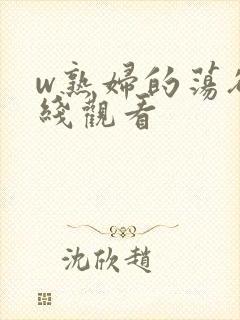 w熟婦的蕩
綫觀看
沈欣趙